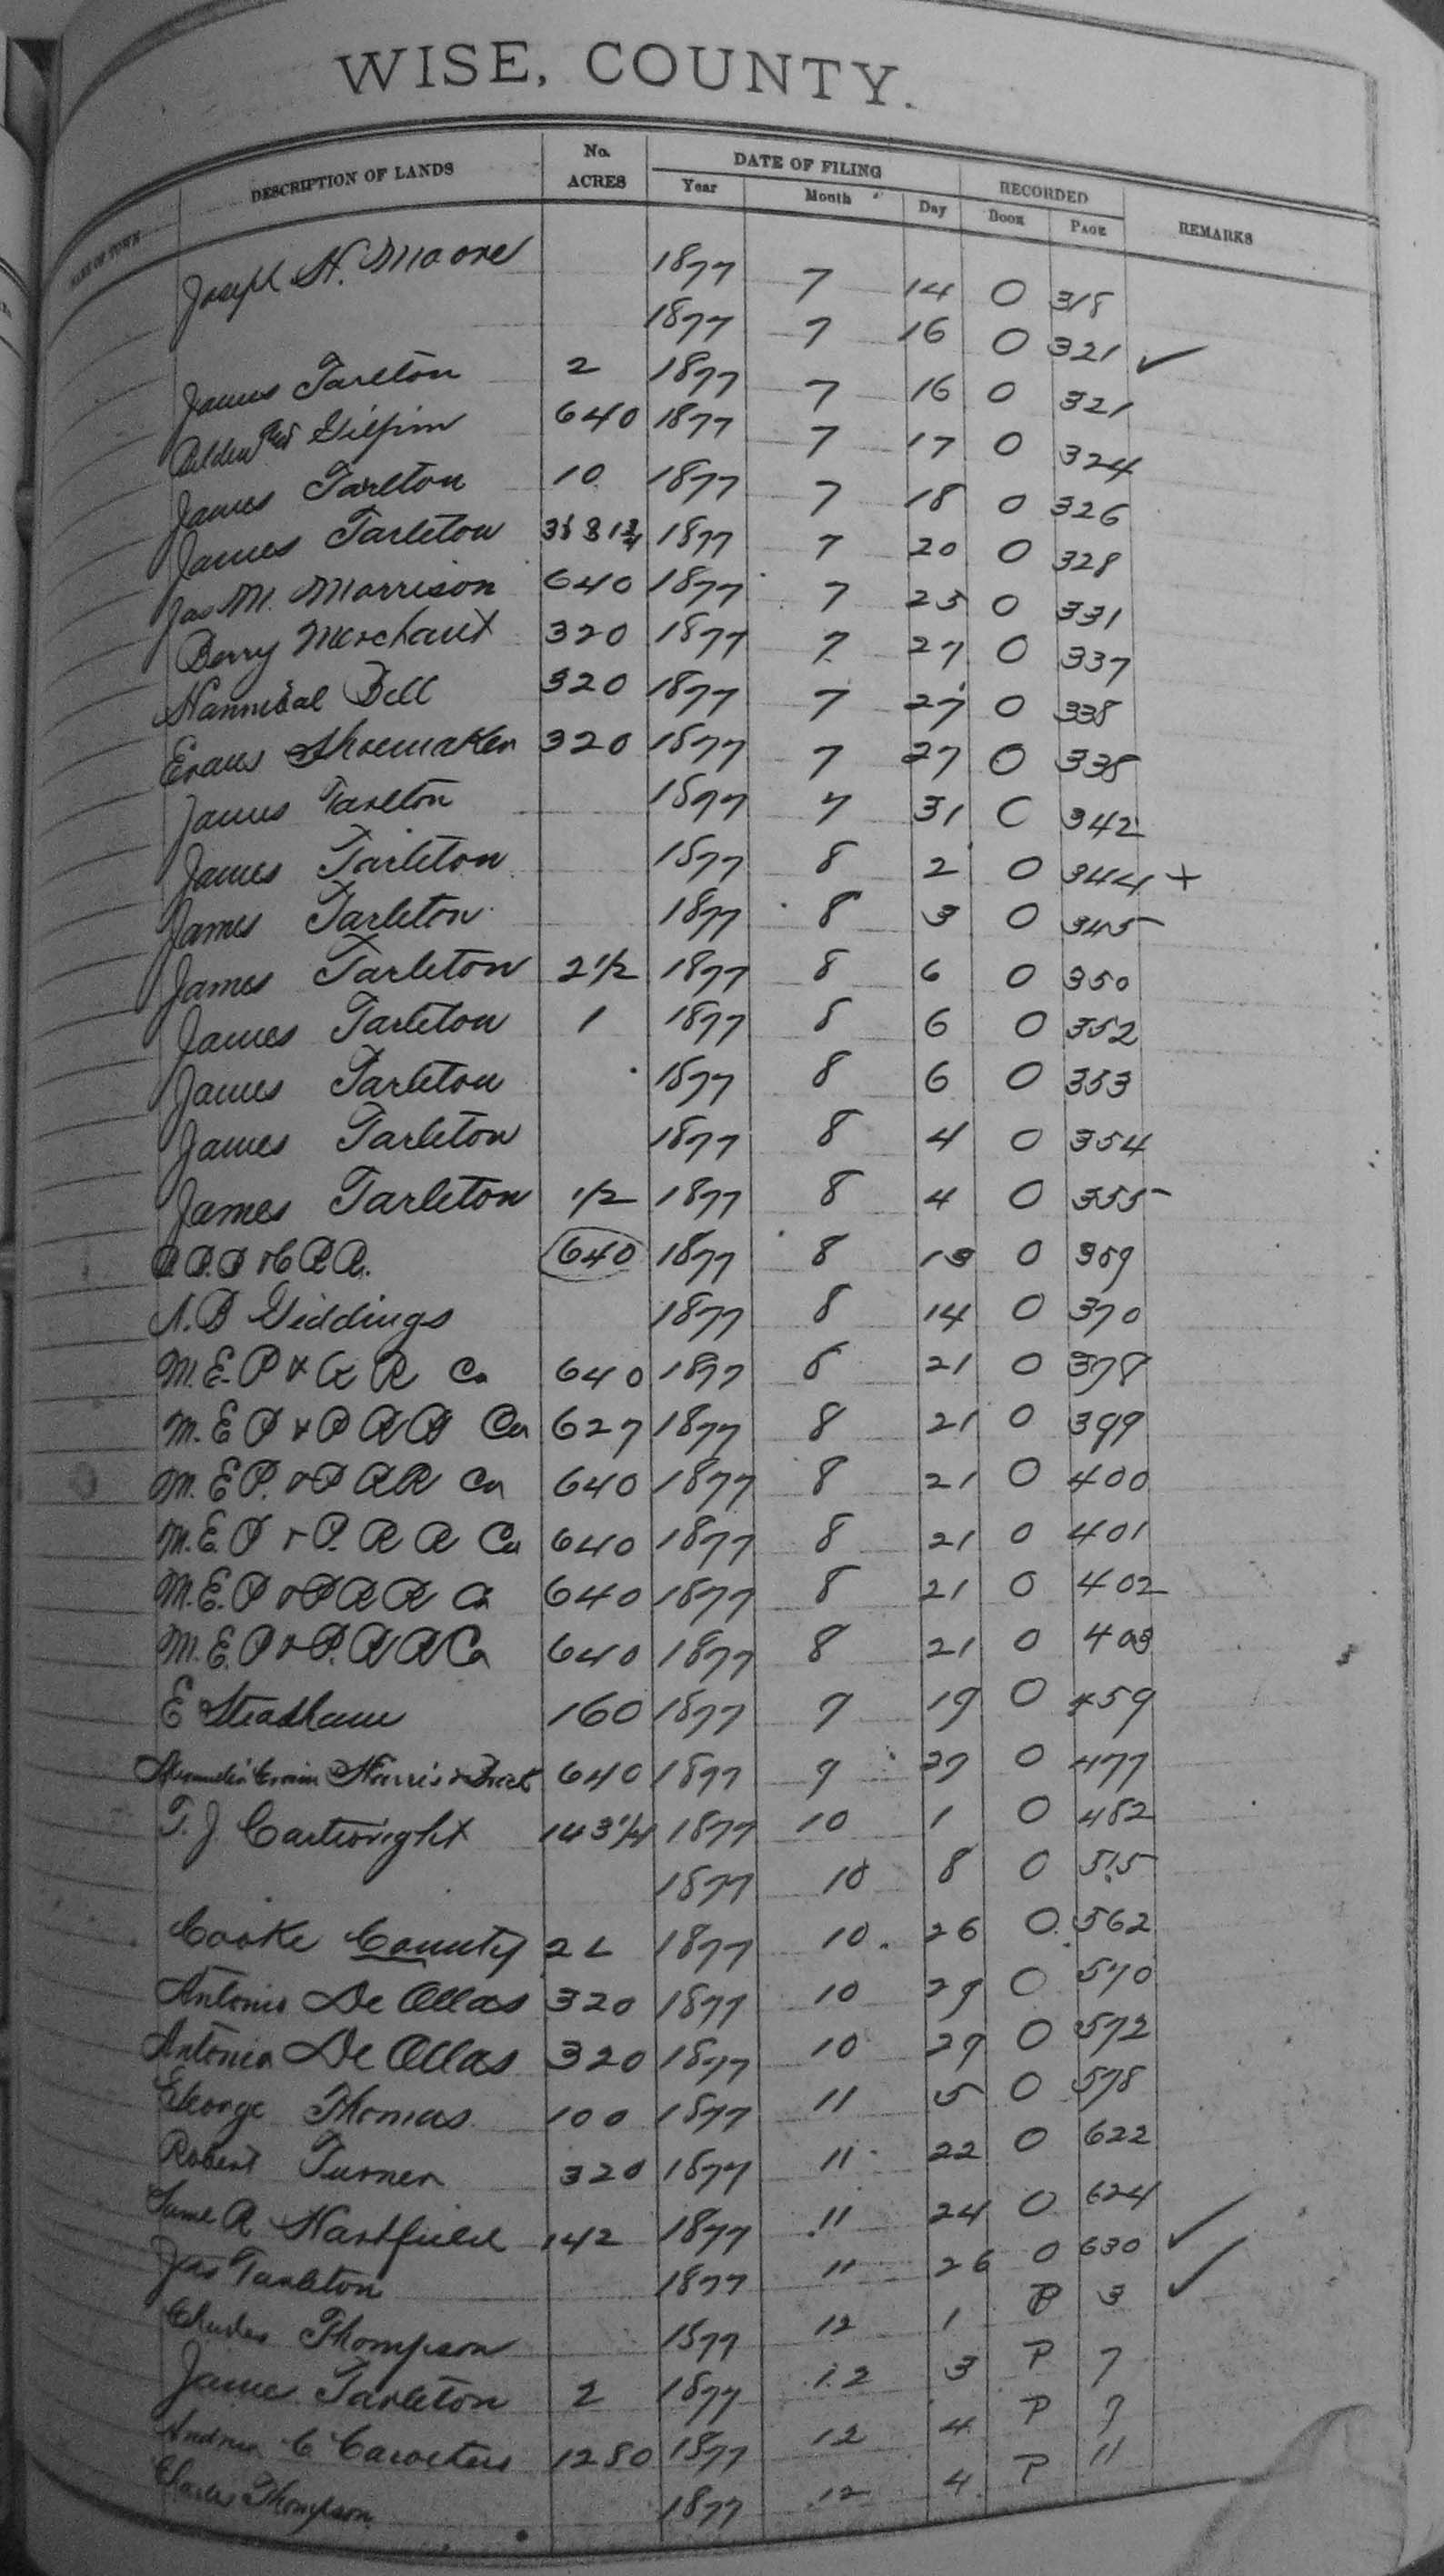 WISE, COUNTY.
DATE OF FILING
RECORDED
NAME OF TOWN DESCRIPTION OF LANDS No. ACRES Year Month Day BOOK PAGE REMARKS
Joseph H. Moore 1877 7 14 O 318
1877 7 16 O 321 ✓
James Tarleton 2 1877 7 16 O 321
Gilpin 640 1877 7 17 O 324
James Tarlton 10 1877 7 18 O 326
James Tarleton 1877 7 20 O 328
Jas M. Morrison 640 1877 7 25 O 331
Berry Merchant 320 1877 7 27 O 337
Hannibal Bell 320 1877 7 27 O 338
Evans Shoemaker 320 1877 7 27 O 338
James Tarlton 1877 7 31 O 342
James Tarleton 1877 8 2 O 344 +
James Tarleton 1877 8 3 O 345
James Tarleton 2 1/2 1877 8 6 O 350
James Tarleton 1 1877 8 6 O 352
James Tarleton 1877 8 6 O 353
James Tarleton 1877 8 4 O 354
James Tarleton 1/2 1877 8 4 O 355
R.R. 640 1877 8 13 O
Giddings 1877 8 14 O 370
M.E.P & R Co 640 1877 8 21 O 378
M.E P & P R R Co 627 1877 8 21 O 399
M.E P. & P R R Co 640 1877 8 21 O 400
M.E. P & P. R R Co 640 1877 8 21 O 401
M.E. P & P R R Co 640 1877 8 21 O 402
M.E. P & P. R R Co 640 1877 8 21 O 403
E Steadham 160 1877 9 19 O 459
Harris & 640 1877 9 27 O 477
T. J. Cartwright 143 1/4 1877 10 1 O 482
1877 10 8 O 515
Cooke County 2 L 1877 10 26 O 562
Antonio De Ollas 320 1877 10 29 O 570
Antonia De Ollas 320 1877 10 29 O 572
George Thomas 100 1877 11 5 O 578
Robert Turner 320 1877 11 22 O 622
Saml R Hartfield 142 1877 11 24 O 624
Jas Tarleton 1877 11 26 O 630 ✓
Charles Thompson 1877 12 1 P 3 ✓
James Tarleton 2 1877 12 3 P 7
Andrew C Carothers 1280 1877 12 4 P
Charles Thompson 1877 12 4 P 11